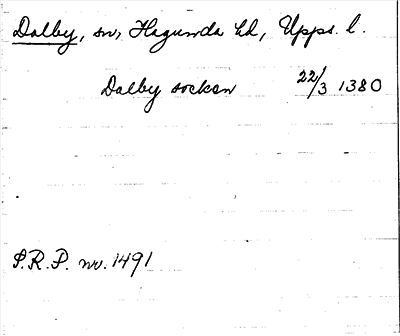 Dalby, sn, Hagunda hd, Upps. l.
Dalby socken 22/3 1380
S.R.P. nr. 1491